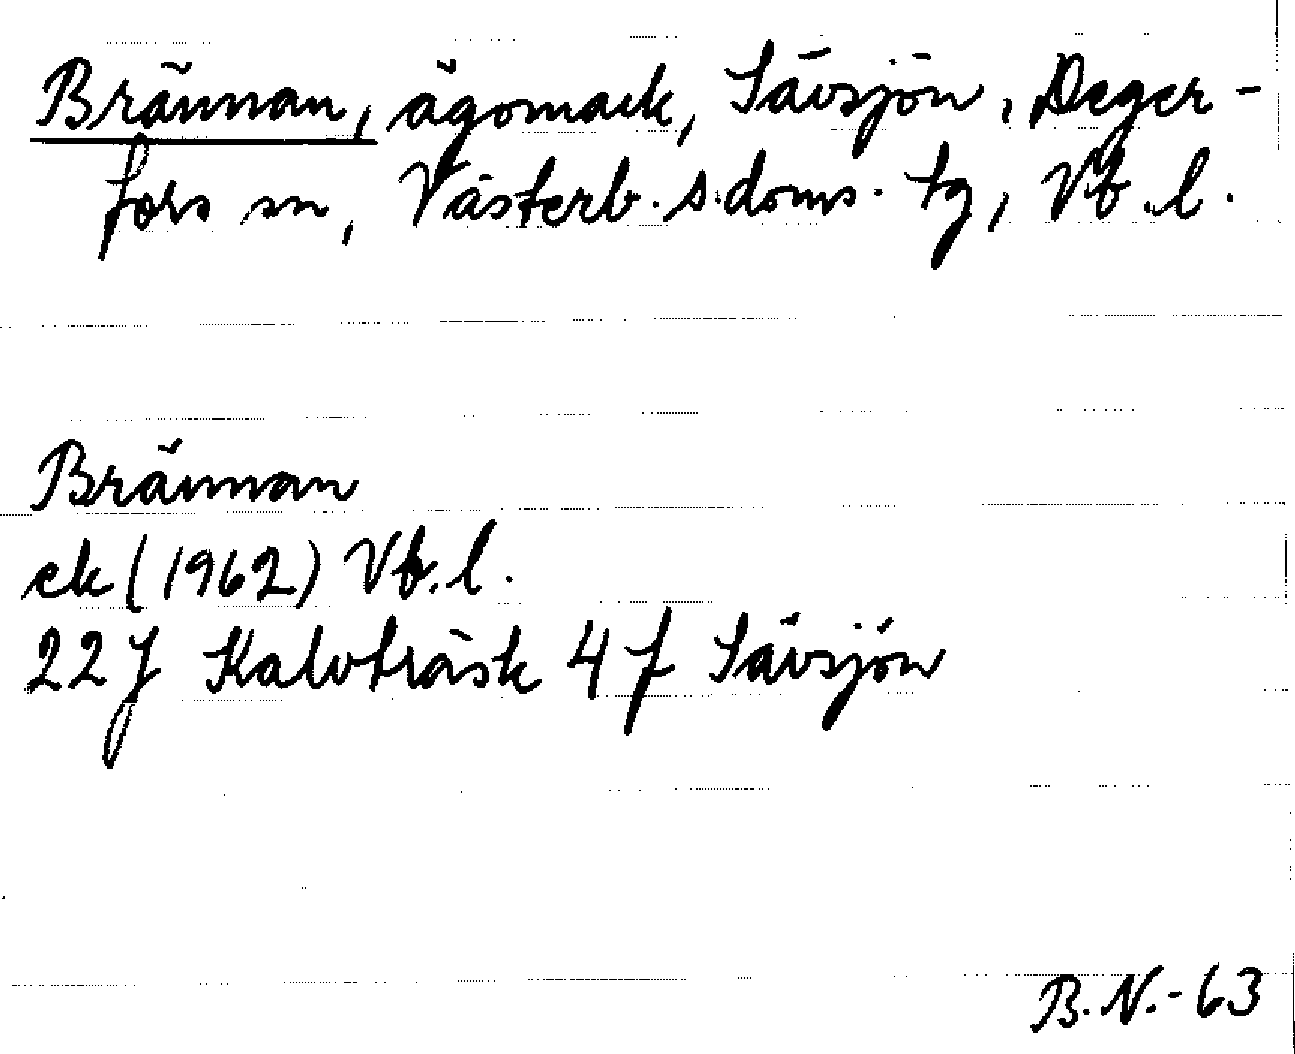 Brännan, ägomark, Sävsjön, Deger-
fors sn, Västerb. s. doms. tg, Vb. l.
Brännan
ek (1962) Vb. l.
22 J Kalvträsk 4 f Sävsjön
B. N. - 63